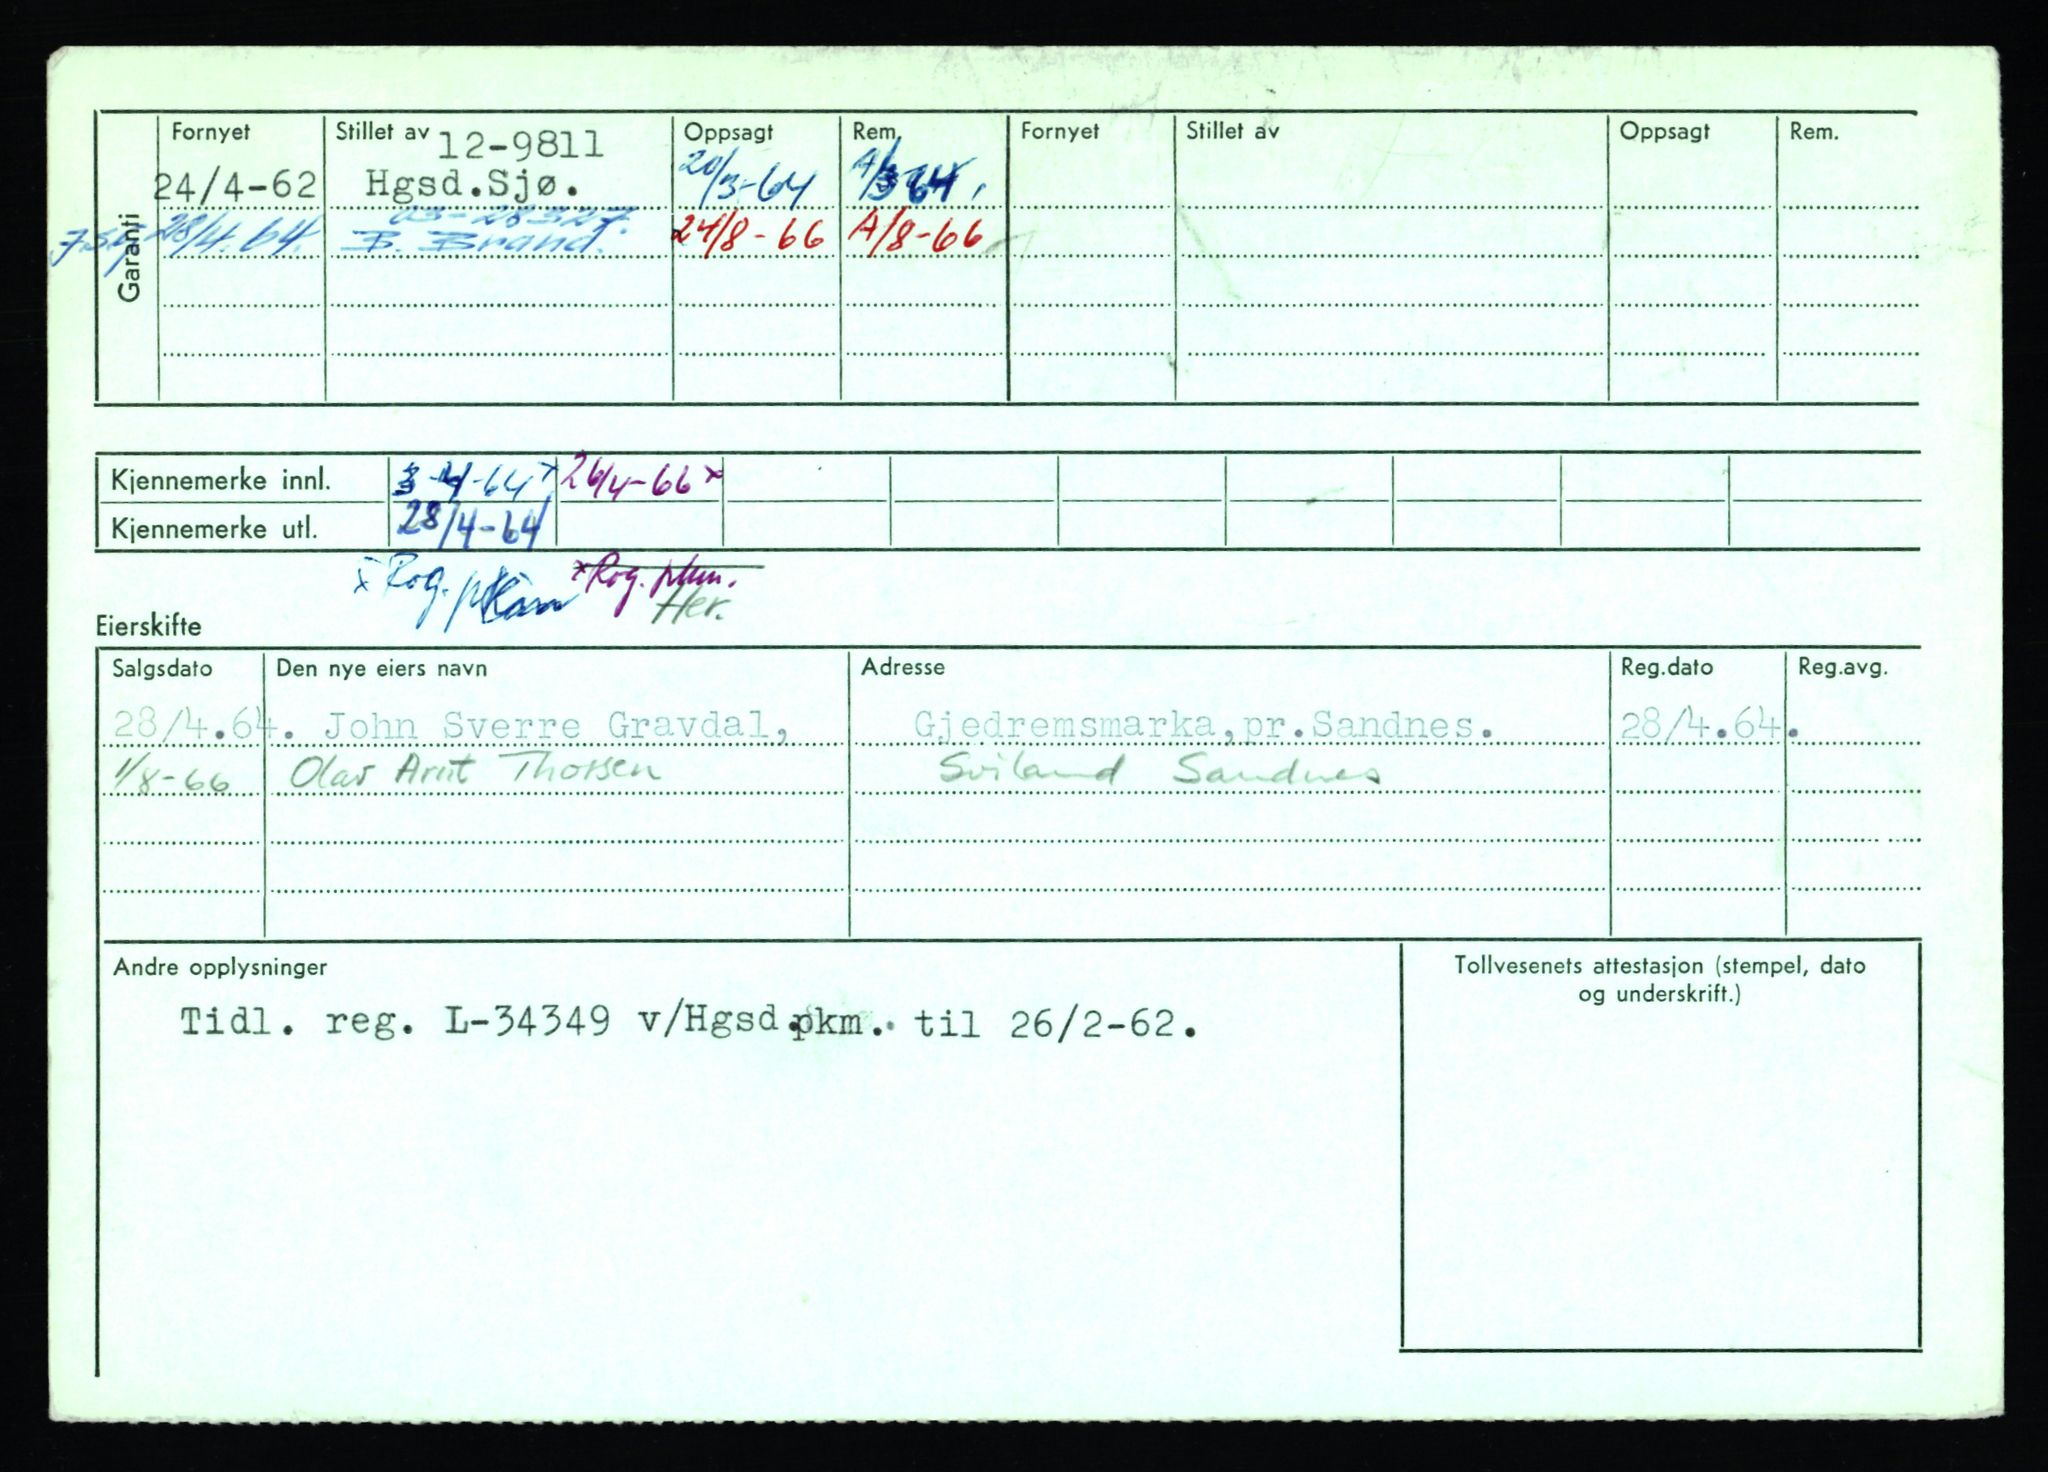 Garanti
Fornyet Stillet av Oppsagt Rem. Fornyet Stillet av Oppsagt Rem.
12-9811
24/4-62 Hgsd.Sjø. 20/3-64 A/3 64.
03-28327.
28/4.64. B. Brand. 24/8-66 A/8-66
Kjennemerke innl. 3-4-64x 26/4-66x
Kjennemerke utl. 28/4-64
x Rog. pkm x Rog. pkm.
Her.
Eierskifte
Salgsdato Den nye eiers navn Adresse Reg.dato Reg.avg.
28/4.64. John Sverre Gravdal, Gjedremsmarka,pr.Sandnes. 28/4.64.
1/8-66 Olav Arnt Thorsen Sviland Sandnes
Andre opplysninger
Tollvesenets attestasjon (stempel, dato
og underskrift.)
Tidl. reg. L-34349 v/Hgsd.pkm. til 26/2-62.